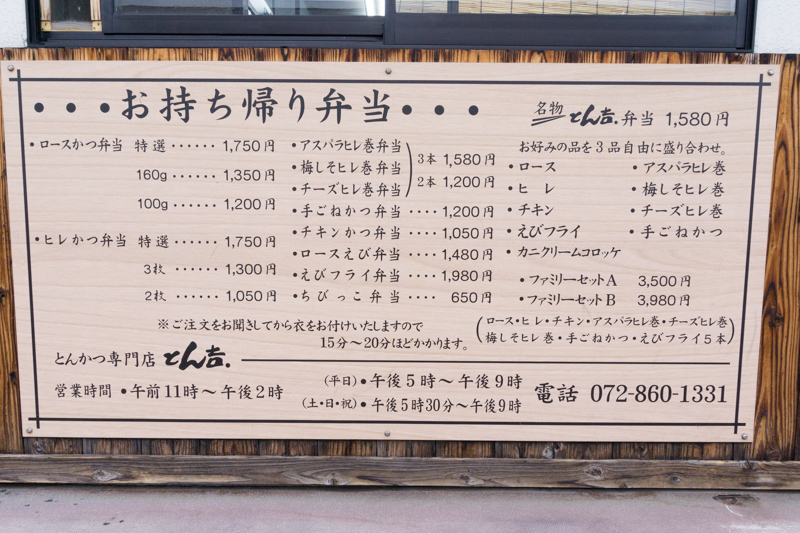 ・・・お持ち帰り弁当・・・
・ロースかつ弁当 特選 ・・・・・・ 1,750円
160g ・・・・・・ 1,350円
100g ・・・・・・ 1,200円
・ヒレかつ弁当 特選 ・・・・・・ 1,750円
3枚 ・・・・・・ 1,300円
2枚 ・・・・・・ 1,050円
・アスパラヒレ巻弁当
・梅しそヒレ巻弁当
・チーズヒレ巻弁当
3本 1,580円
2本 1,200円
・手ごねかつ弁当 ・・・・ 1,200円
・チキンかつ弁当 ・・・・ 1,050円
・ロースえび弁当 ・・・・ 1,480円
・えびフライ弁当 ・・・・ 1,980円
・ちびっこ弁当 ・・・・ 650円
名物 とん吉. 弁当 1,580円
お好みの品を3品自由に盛り合わせ。
・ロース ・アスパラヒレ巻
・ヒレ ・梅しそヒレ巻
・チキン ・チーズヒレ巻
・えびフライ ・手ごねかつ
・カニクリームコロッケ
・ファミリーセットA 3,500円
・ファミリーセットB 3,980円
(ロース・ヒレ・チキン・アスパラヒレ巻・チーズヒレ巻
梅しそヒレ巻・手ごねかつ・えびフライ5本)
※ご注文をお聞きしてから衣をお付けいたしますので
15分〜20分ほどかかります。
とんかつ専門店 とん吉.
営業時間 ・午前11時〜午後2時
(平日)・午後5時〜午後9時
(土・日・祝)・午後5時30分〜午後9時
電話 072-860-1331